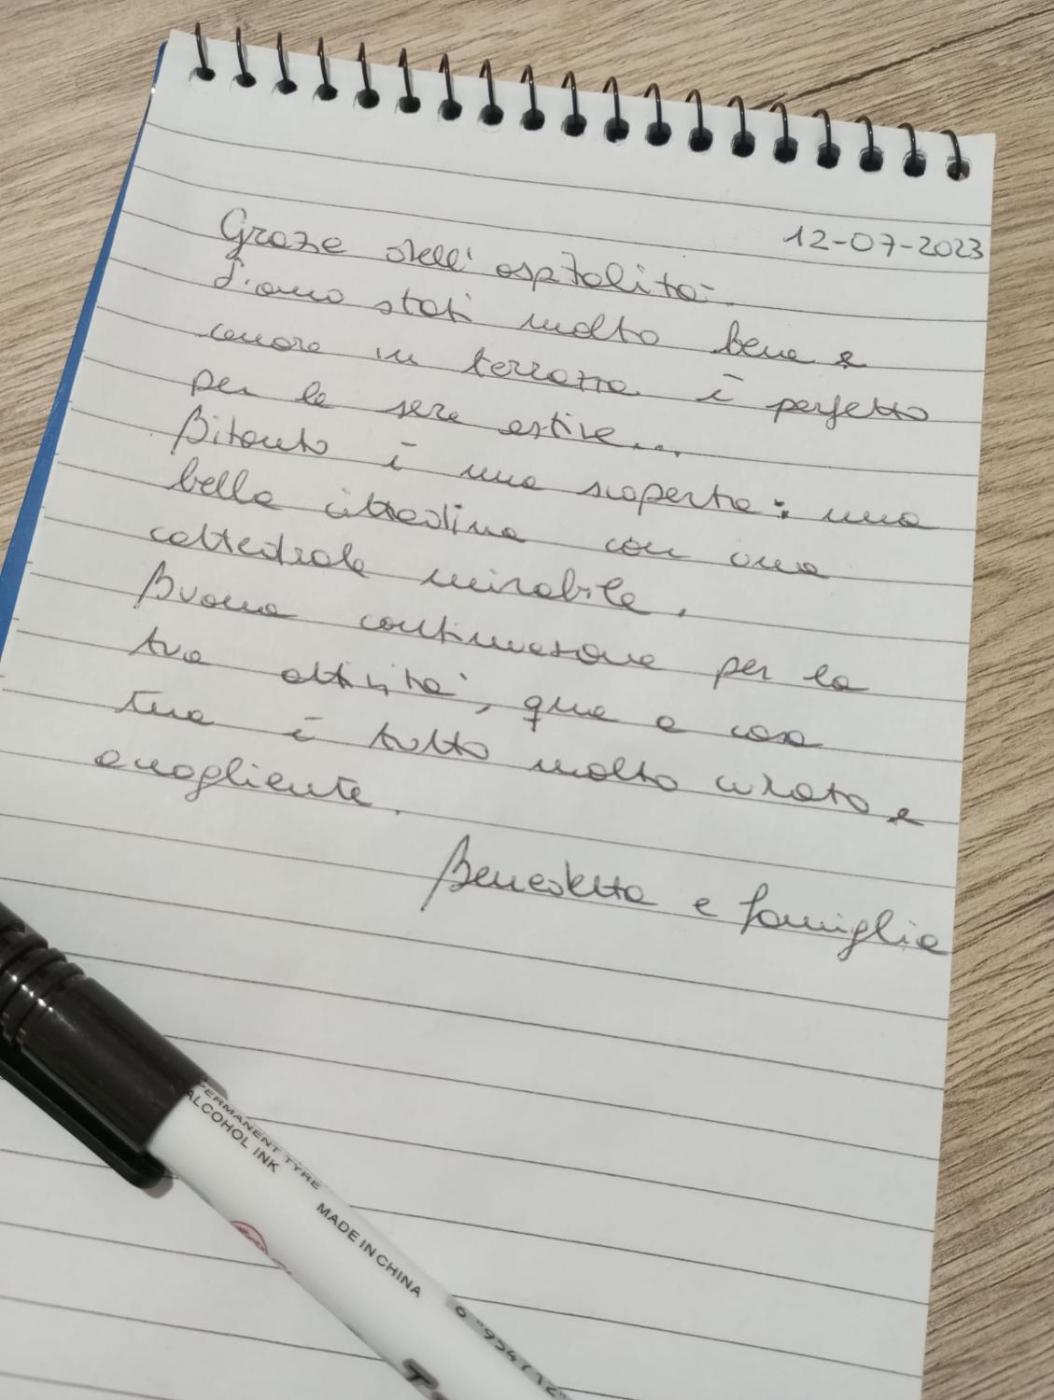 12-07-2023
Grazie dell'ospitalità.
Siamo stati molto bene e
cenare in terrazza è perfetto
per le sere estive...
Bitonto è una scoperta: una
bella cittadina con una
cattedrale mirabile.
Buona continuazione per la
tua attività, qua a casa
tua è tutto molto curato e
accogliente.
Benedetta e famiglia
PERMANENT TYPE
ALCOHOL INK
MADE IN CHINA